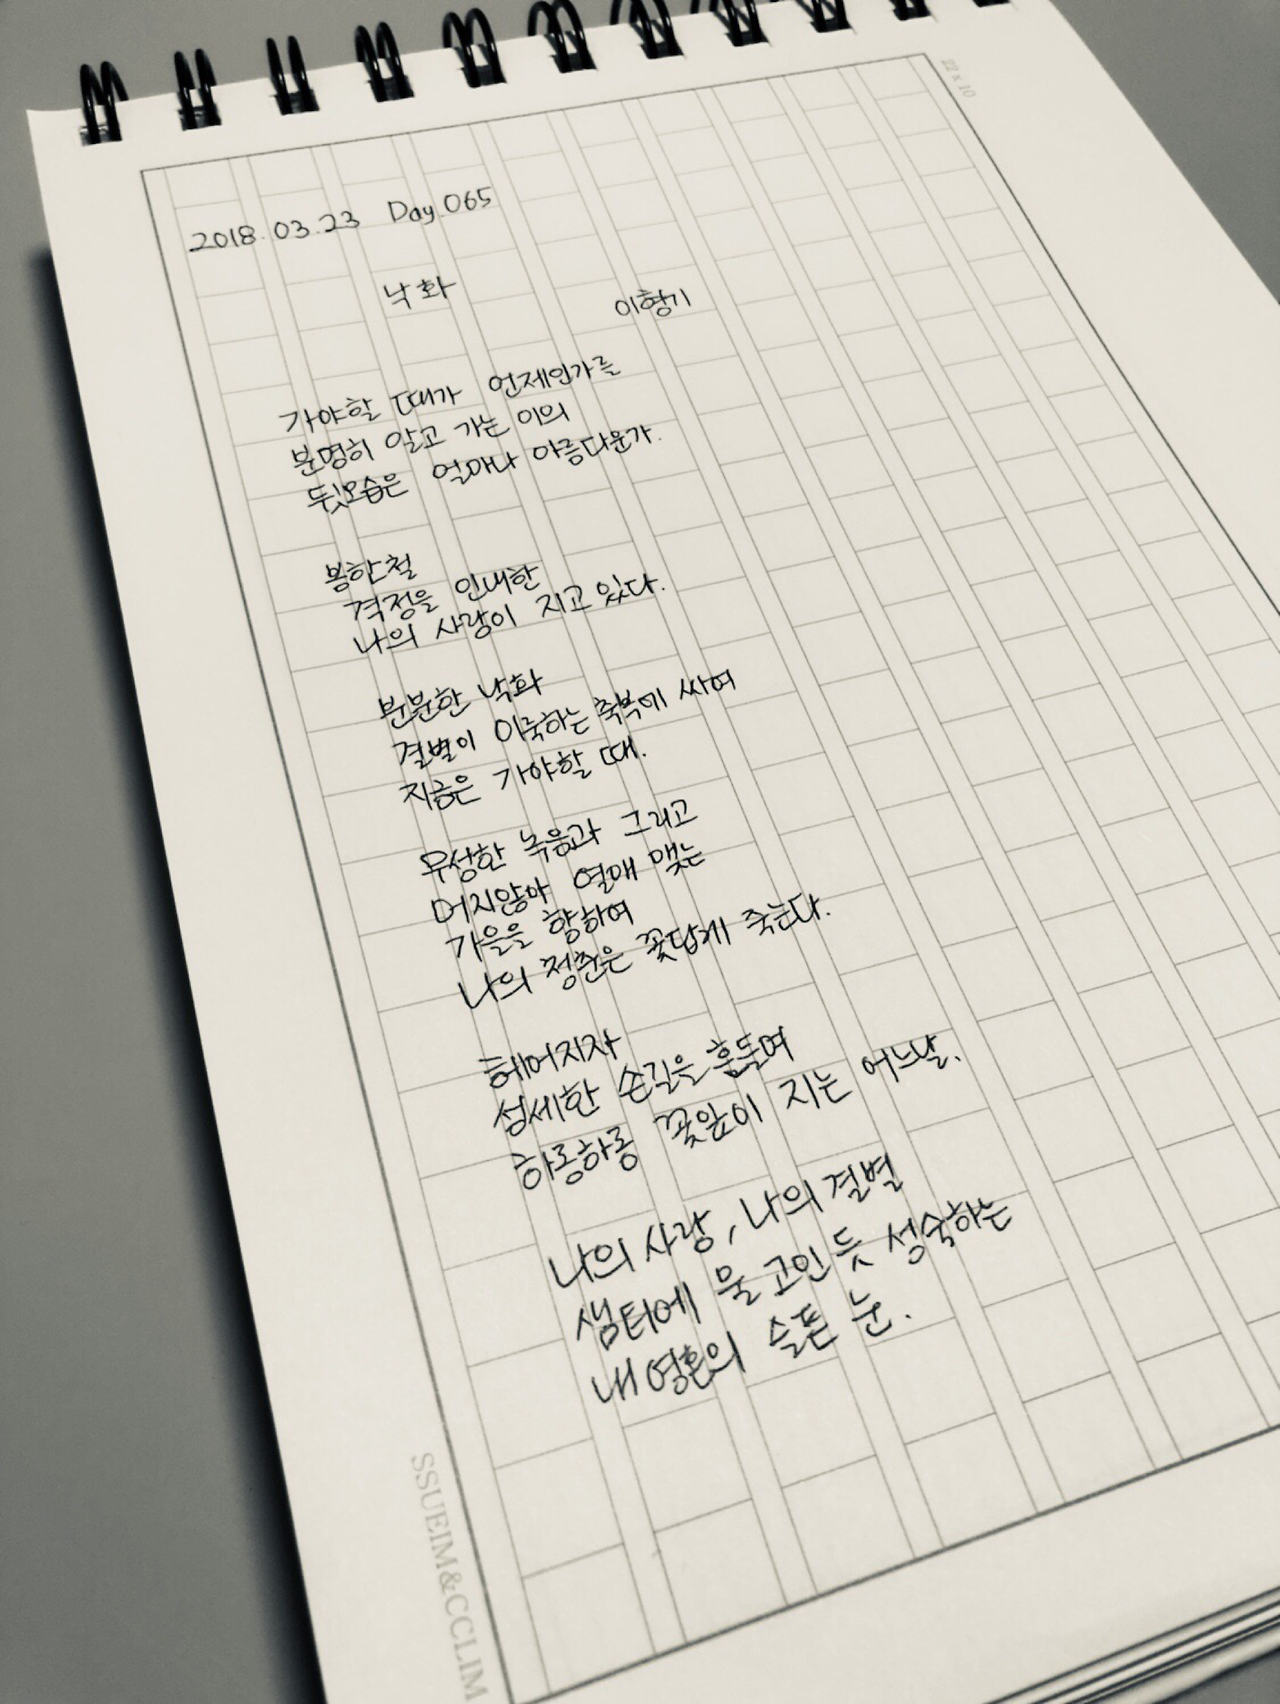 22 x 10
2018.03.23 Day.065
낙화
이형기
가야할 때가 언제인가를
분명히 알고 가는 이의
뒷모습은 얼마나 아름다운가.
봄한철
격정을 인내한
나의 사랑이 지고있다.
분분한 낙화
결별이 이룩하는 축복에 싸여
지금은 가야할 때.
무성한 녹음과 그리고
머지않아 열매 맺는
가을을 향하여
나의 청춘은 꽃답게 죽는다.
헤어지자
섬세한 손길을 흔들며
하롱하롱 꽃잎이 지는 어느날.
나의 사랑, 나의 결별
샘터에 물 고인 듯 성숙하는
내 영혼의 슬픈 눈.
SSUEIM&CCLIM